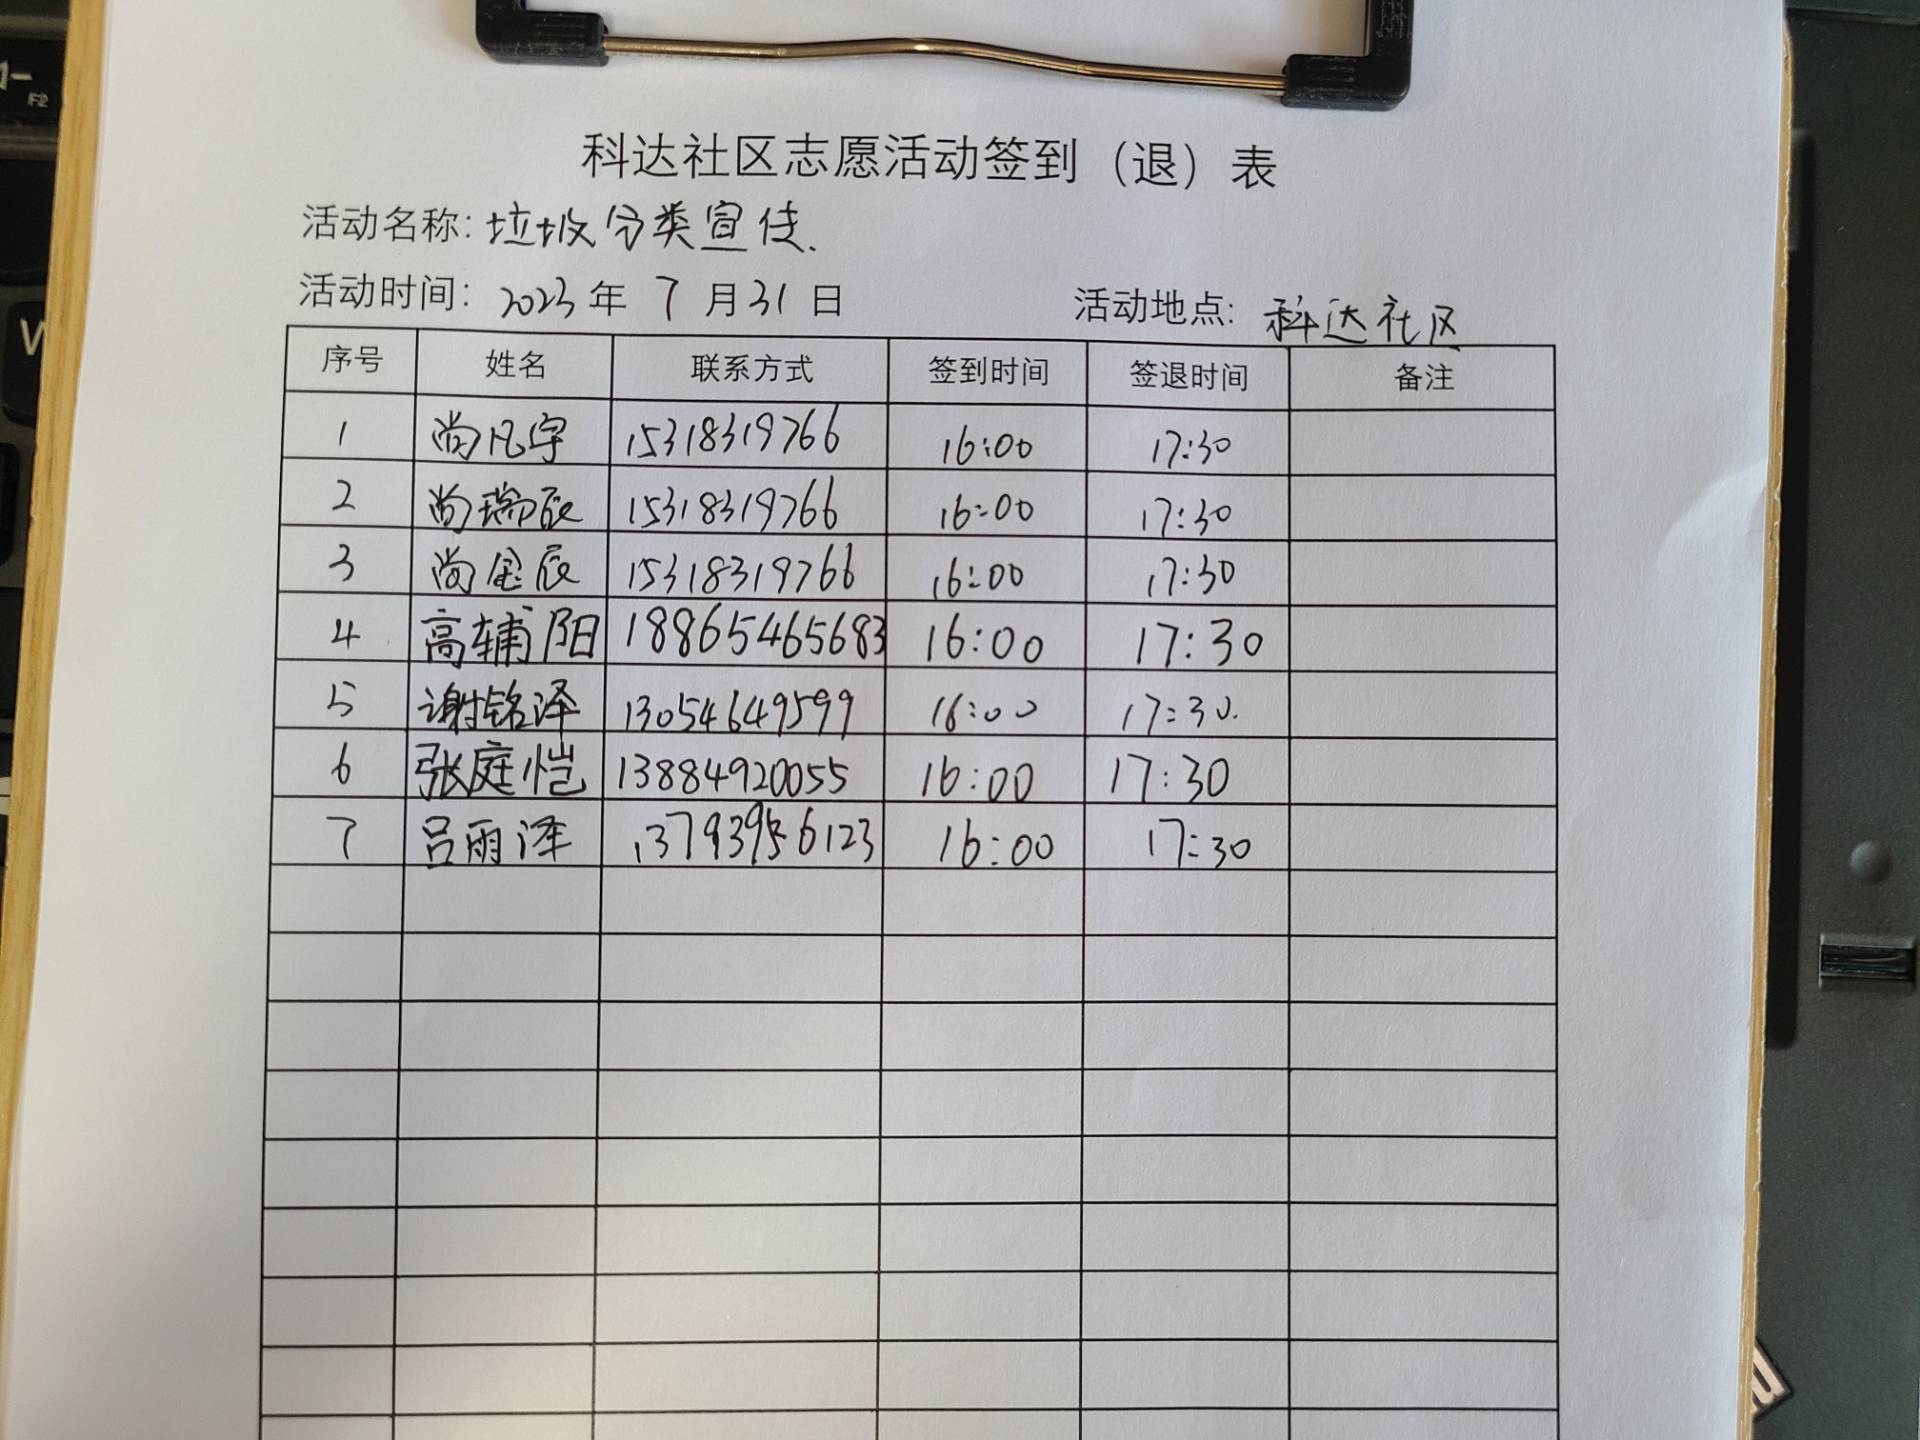 F2
W
科达社区志愿活动签到（退）表
活动名称: 垃圾分类宣传.
活动时间: 2023 年 7 月 31 日 活动地点: 科达社区
序号 姓名 联系方式 签到时间 签退时间 备注
1 尚凡宇 15318319766 16:00 17:30
2 尚瑞辰 15318319766 16:00 17:30
3 尚金辰 15318319766 16:00 17:30
4 高辅阳 18865465683 16:00 17:30
5 谢铭泽 13054649599 16:00 17:30.
6 张庭恺 13884920055 16:00 17:30
7 吕雨泽 13793956123 16:00 17:30